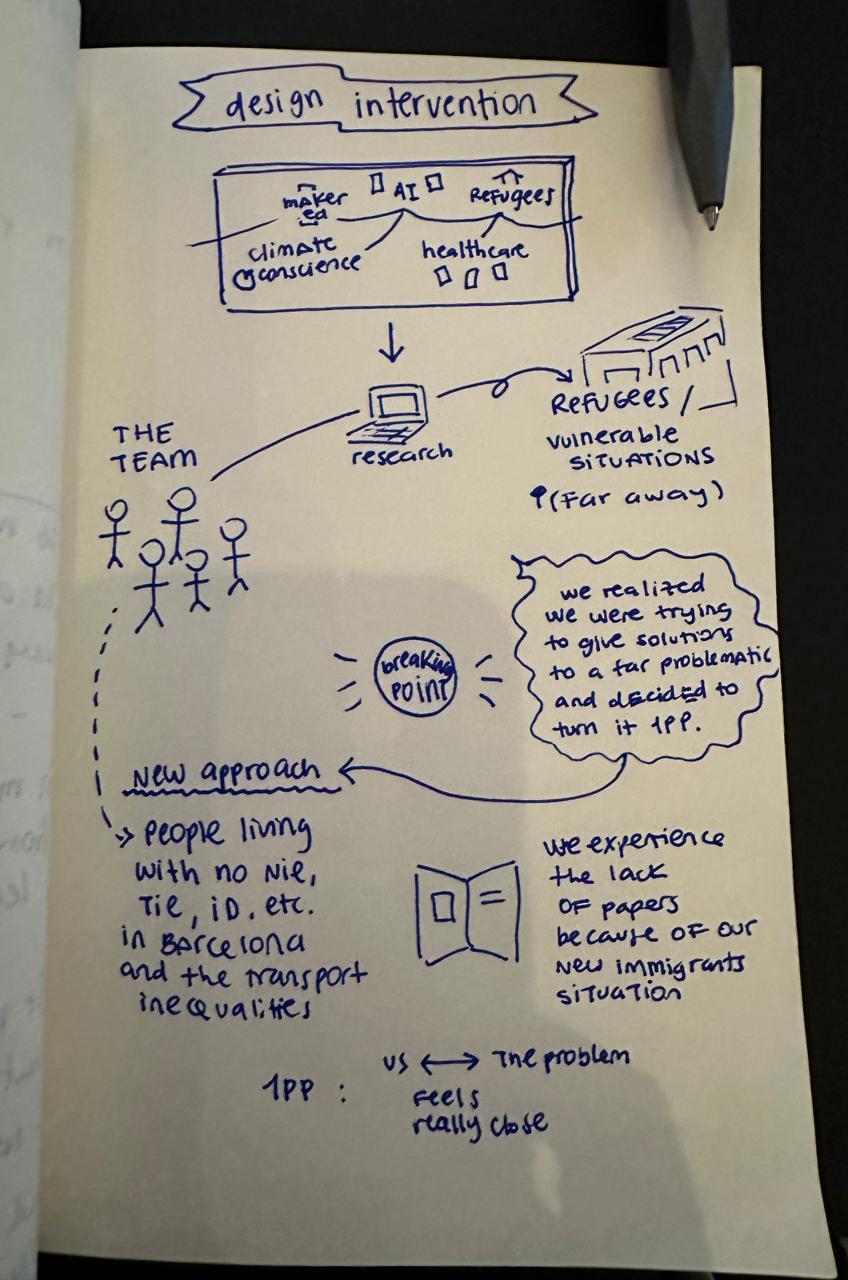 design intervention
maker
ed
AI
Refugees
climate
conscience
healthcare
THE
TEAM
research
Refugees /
vulnerable
situations
(far away)
we realized
we were trying
to give solutions
to a far problematic
and decided to
turn it 1PP.
breaking
point
New approach
People living
with no Nie,
Tie, iD, etc.
in Barcelona
and the transport
inequalities
we experience
the lack
of papers
because of our
new immigrants
situation
1PP :
us ↔ The problem
feels
really close